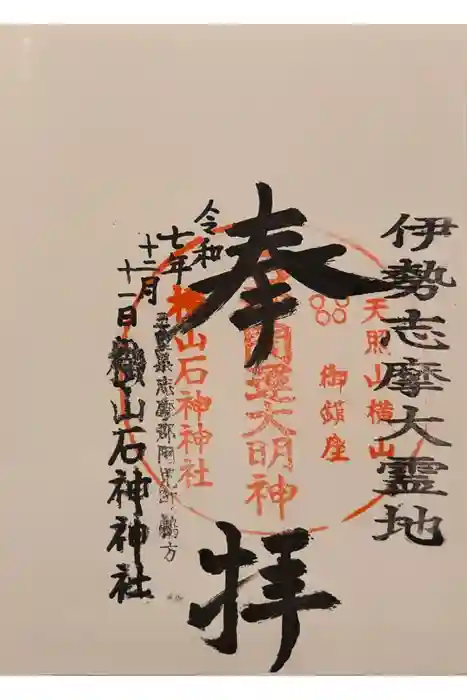 伊勢志摩大霊地
天照山横山
御鎮座
奉拝
開運大明神
横山石神神社
令和
七年
十二月
十一日
三重県志摩郡阿児町鵜方
横山石神神社